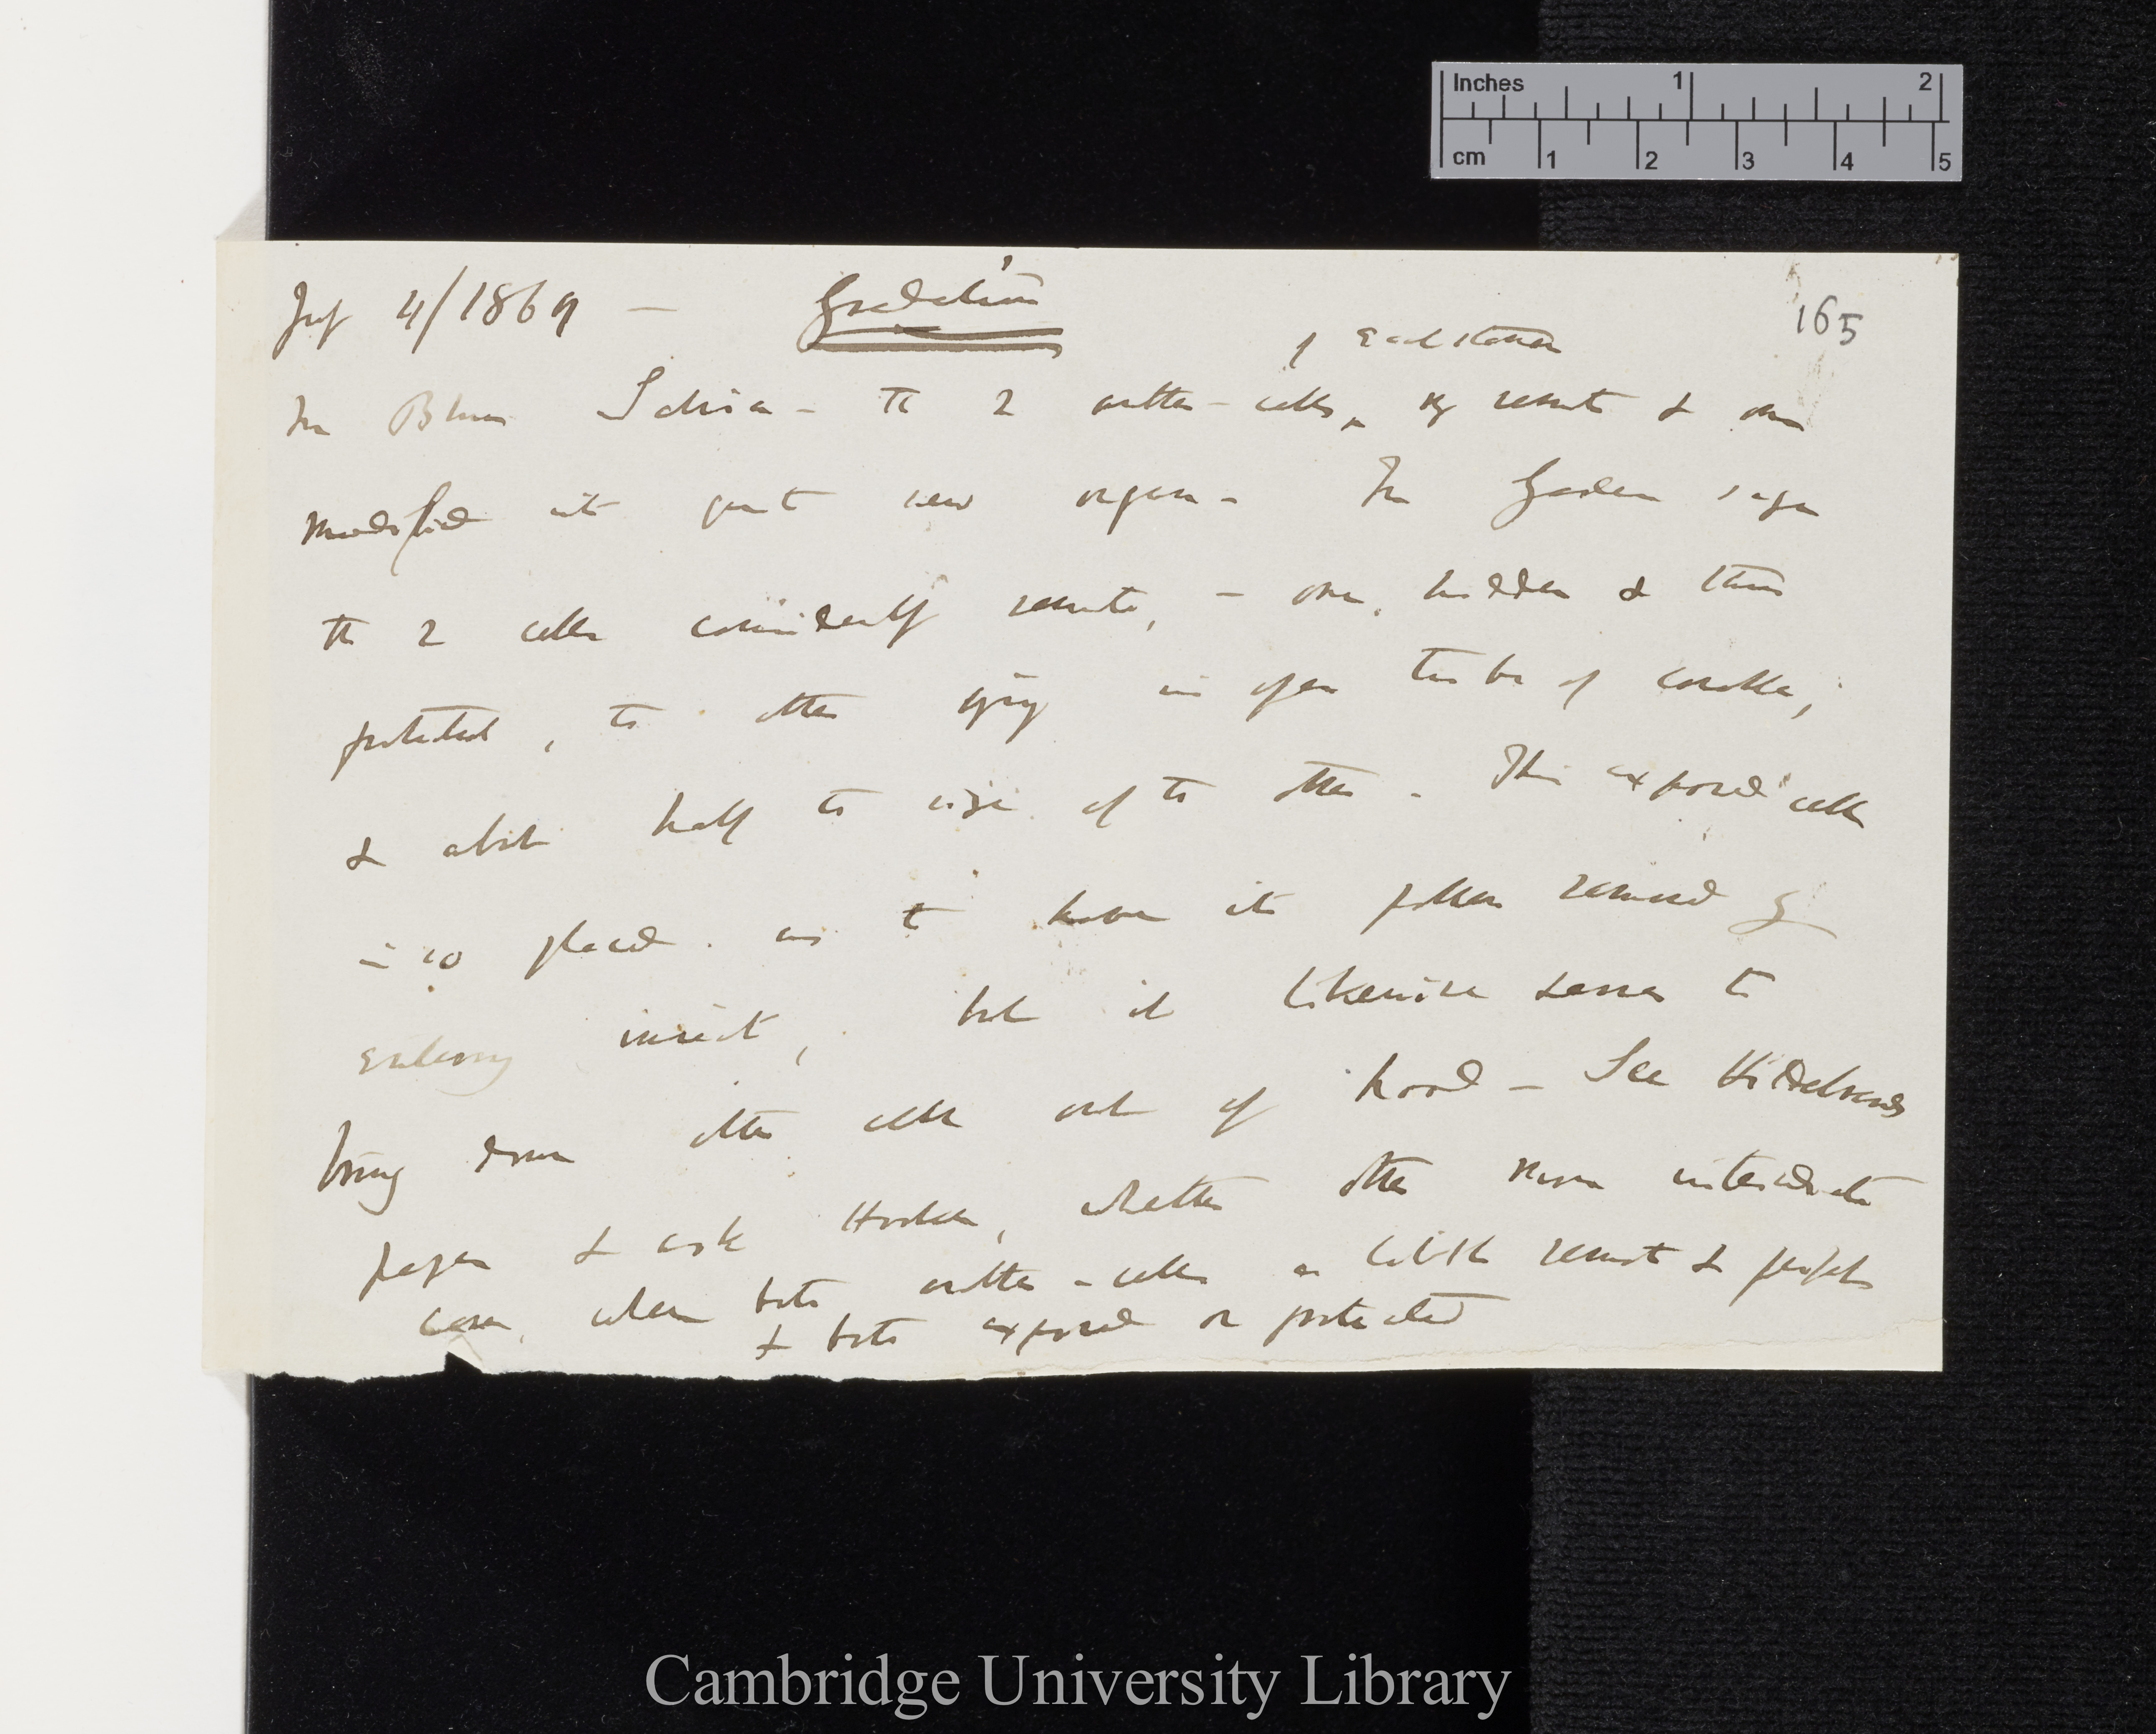 Inches 1 2
cm 1 2 3 4 5
July 4/1869 — Gradation
165
of each stamen
In Blue Salvia – the 2 anther-cells, vy remote & one
modified into quite new organ – In Garden sage
the 2 cells considerably remote, – one, hidden & thus
protected, the other lying in open tube of corolla,
& about half the size of the other. This exposed cell
is so placed as to have its pollen removed by
entering insect, but it likewise serves to
bring down other cell out of hood – See Hildebrand's
paper & ask Hooker, whether other more intermediate
cases, when both anther-cells are little remote & perfect
& both exposed or protected
Cambridge University Library